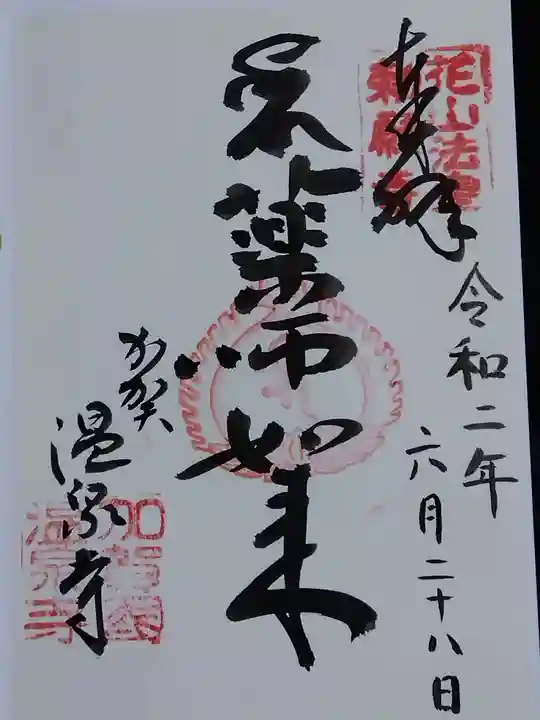 奉拝
花山法皇
勅願寺
令和二年
六月二十八日
薬師如来
加賀
温泉寺
加賀國
温泉寺